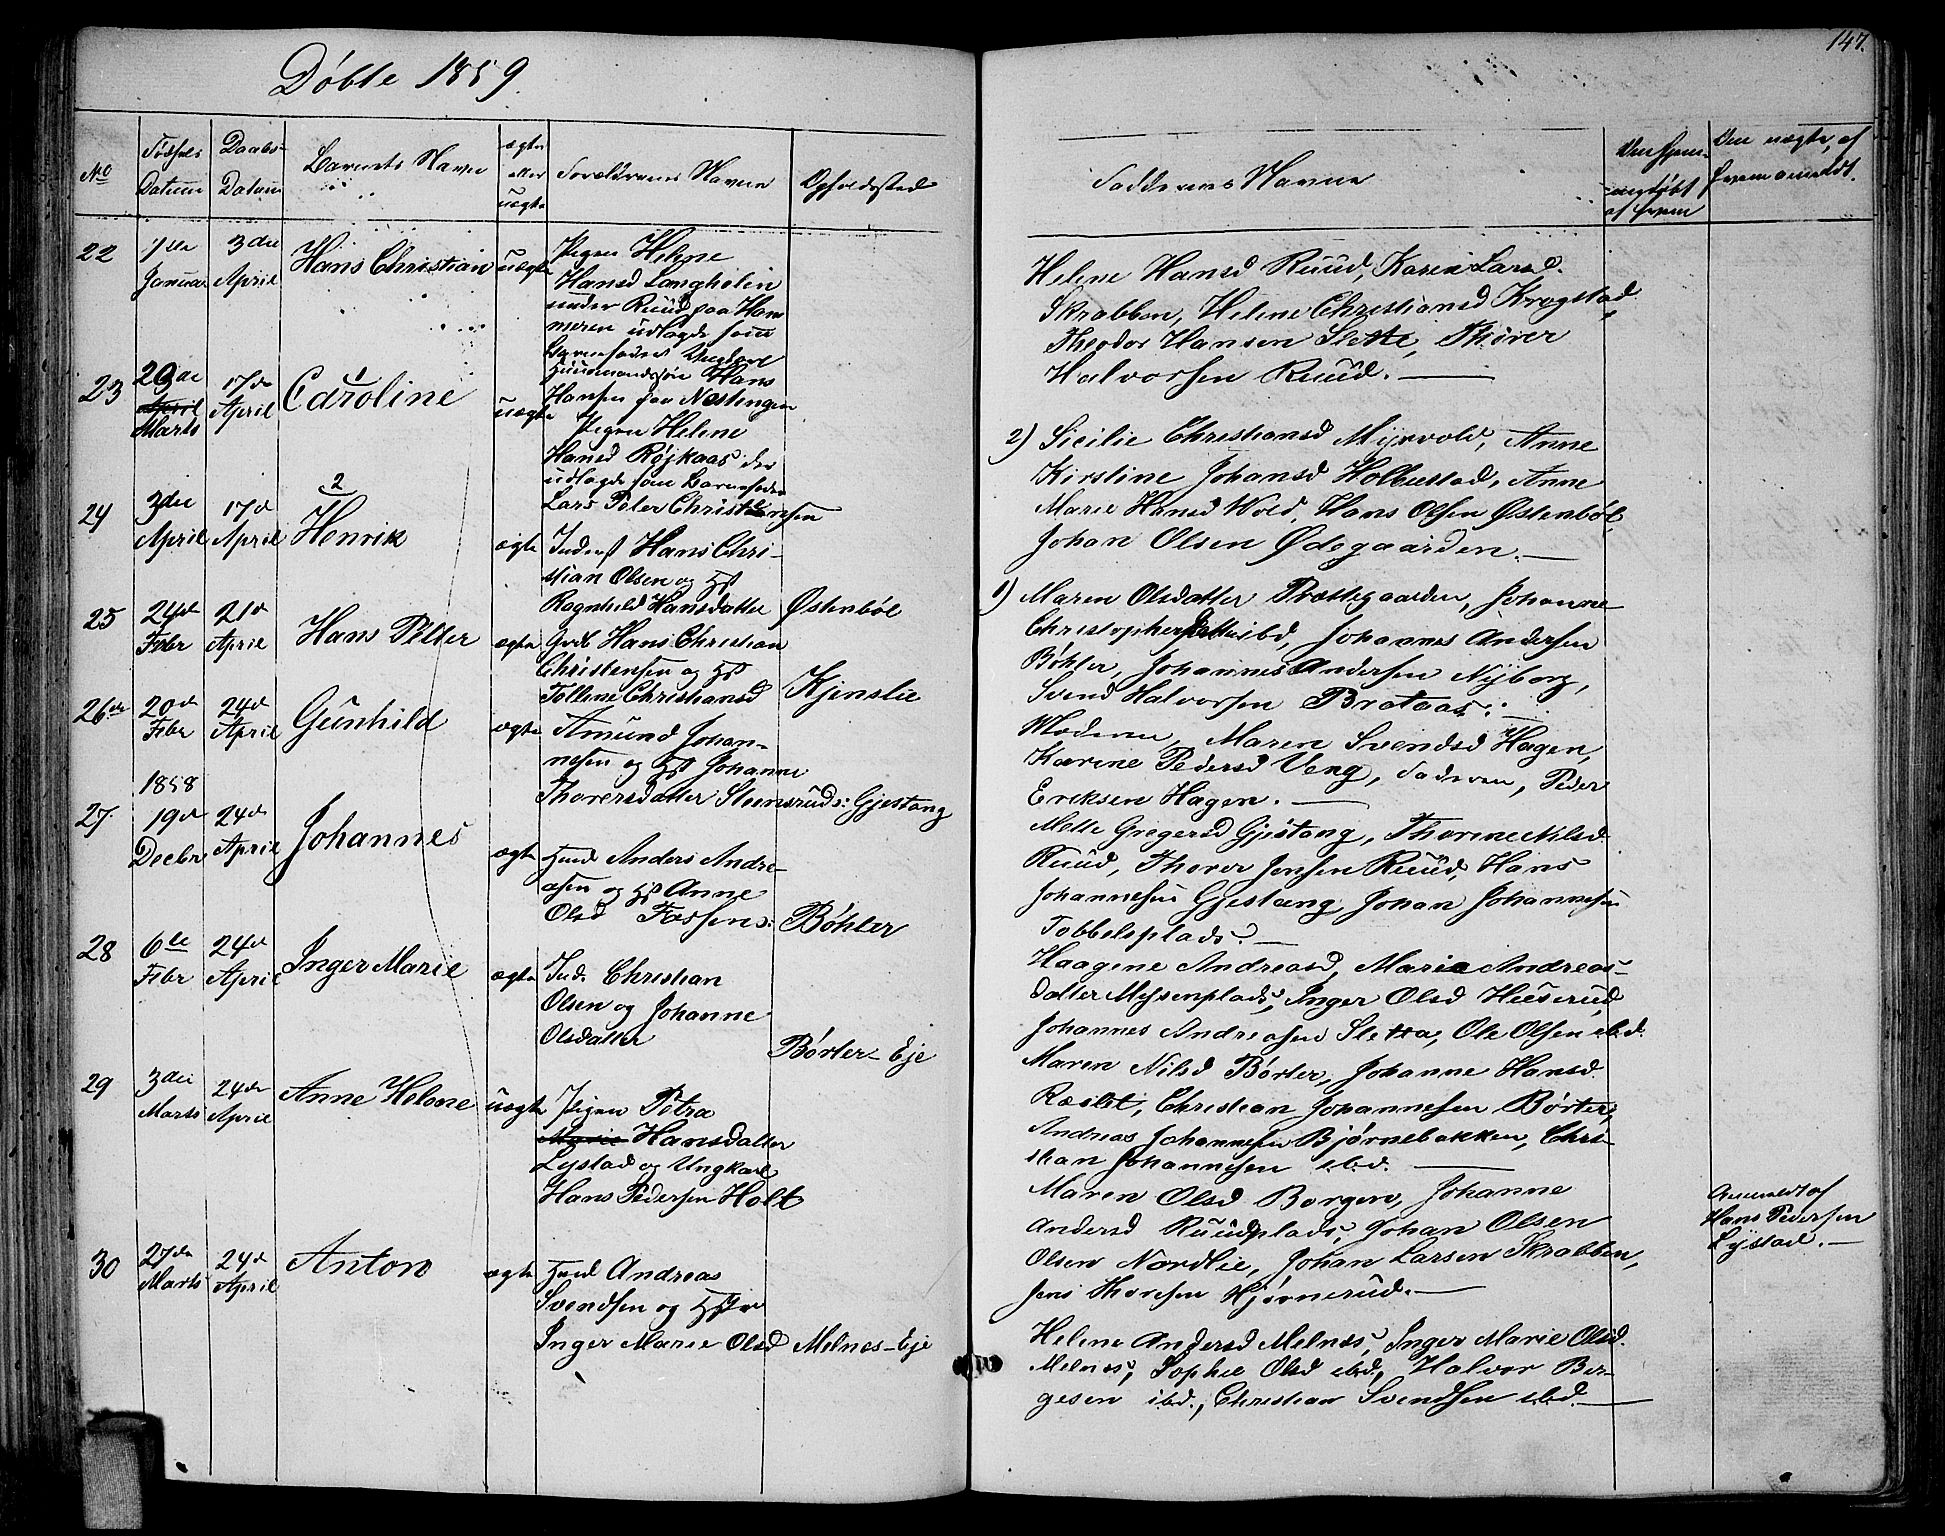 Døbte 1859
147.
No
Fødsels Datum
Daabs- Datum
Barnets Navn
ægte eller uægte
Forældrenes Navne
Opholdssted
Faddernes Navne
af hvem
Den uægte, af hvem anmeldt.
22
1ste Januar
3die April
Hans Christian
uægte
Pigen Helene
Hansd Langholin
under Ruud paa Ham
meren udlagde som
Barnefader Ungkarl
Huusmandssøn Hans
Hansen paa Næstengen
Helene Hansd Ruud, Karen Larsd.
Skrabben, Helene Christiansd Krogstad,
Theodor Hansen Slette, Thorer
Halvorsen Ruud.
23
29de April Marts
17de April
1
Caroline
uægte
Pigen Helene
Hansd Røjkaas der
udlagde som Barnefader
Lars Peter Christensen
2) Sicilie Christiansd Myrvold, Anne
Kirstine Johansd Holbustad, Anne
Marie Hansd Wold, Hans Olsen Østenbøl,
Johan Olsen Ødegaarden.
24
3die April
17d April
2
Henrik
ægte
Inderst Hans Chri-
stian Olsen og Hst
Ragnhild Hansdatter
Østenbøl
1) Maren Olsdatter Præstegaarden, Johanne
Christophersdatter ibd, Johannes Andersen
Bøhler, Johannes Andersen Nyborg,
Svend Halvorsen Brataas.
25
24de Febr
21d April
Hans Petter
ægte
Grdb Hans Christian
Christensen og Hst
Tolline Christiansd
Kjenslie
Moderen, Maren Svendsd Hagen,
Karine Pedersd Veng, Faderen, Peder
Eriksen Hagen.
26de
20de Febr
24d April
Gunhild
ægte
Amund Johan-
nesen og Hst Johanne
Thorersdatter Steensrud: Gjestang
Mette Gregersd Gjestang, Thorine Nilsd.
Ruud, Thorer Jensen Ruud, Hans
Johannesen Gjestang, Johan Johannesen
Tobbelsplads.
27.
1858
19d Decbr
24de April
Johannes
ægte
Huusmd Anders Andre-
asen og Hst Anne
Olsd Fossen:
Bøhler
Haagene Andreasd, Maria Andreas-
datter Mysenplads, Inger Olsd Huserud,
Johannes Andreasen Sletta, Ole Olsen ibd.
28
6te Febr
24de April
Inger Marie
ægte
Ind. Christian
Olsen og Johanne
Olsdatter
Børter-Eje
Maren Nilsd Børter, Johanne Hansd.
Christian Johannesen Børter,
Andreas Johannesen Bjørnebakken, Chri-
stian Johannesen ibd.
29
3die Marts
24de April
Anne Helene
uægte
Pigen Petra
Marie Hansdatter
Lystad og Ungkarl
Hans Pedersen Holt
Maren Olsd Borgen, Johanne
Andersd Ruudplads, Johan Olsen
Olsen Nordlie, Johan Larsen Skrabben,
Jens Thoresen Hjørnerud.
Anmeldt af
Hans Pedersen
Lystad.
30
27de Marts
24de April
Anton
ægte
Huusmd Andreas
Svendsen og Hstr
Inger Marie Olsd
Melnes-Eje
Helene Andersd Melnes, Inger Marie Olsd.
Melnes, Sophie Olsd ibd, Halvor Bir-
gesen ibd., Christian Svendsen ibd.